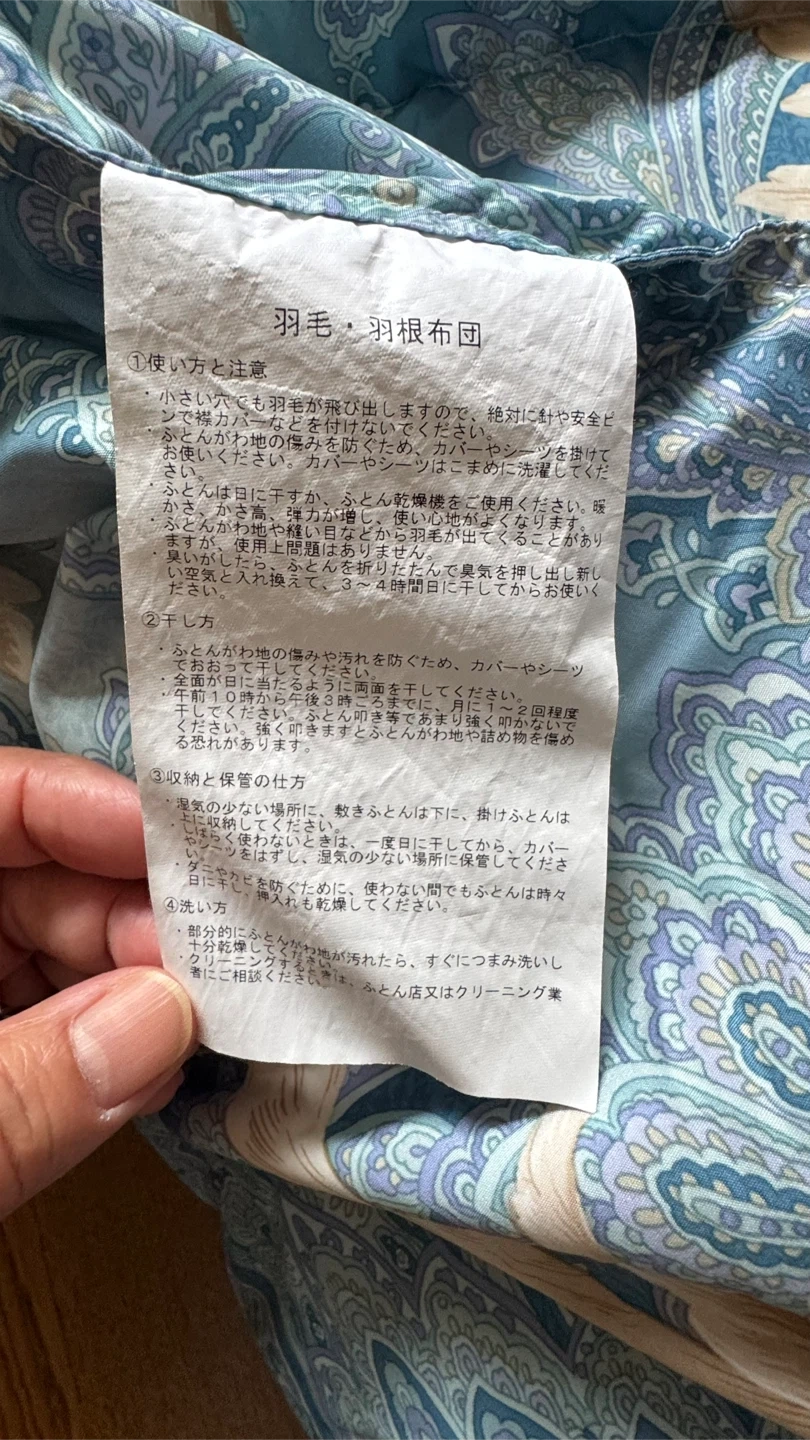 羽毛・羽根布団
①使い方と注意
・小さい穴でも羽毛が飛び出しますので、絶対に針や安全ピ
ンで襟カバーなどを付けないでください。
・ふとんがわ地の傷みを防ぐため、カバーやシーツを掛けて
お使いください。カバーやシーツはこまめに洗濯してくだ
さい。
・ふとんは日に干すか、ふとん乾燥機をご使用ください。暖
かさ、かさ高、弾力が増し、使い心地がよくなります。
・ふとんがわ地や縫い目などから羽毛が出てくることがあり
ますが、使用上問題はありません。
・臭いがしたら、ふとんを折りたたんで臭気を押し出し新し
い空気と入れ換えて、3〜4時間日に干してからお使いく
ださい。
②干し方
・ふとんがわ地の傷みや汚れを防ぐため、カバーやシーツ
でおおって干してください。
・全面が日に当たるように両面を干してください。
・午前10時から午後3時ごろまでに、月に1〜2回程度
干してください。ふとん叩き等であまり強く叩かないで
ください。強く叩きますとふとんがわ地や詰め物を傷め
る恐れがあります。
③収納と保管の仕方
・湿気の少ない場所に、敷きふとんは下に、掛けふとんは
上に収納してください。
・しばらく使わないときは、一度日に干してから、カバー
やシーツをはずし、湿気の少ない場所に保管してくださ
い。
・ダニやカビを防ぐために、使わない間でもふとんは時々
日に干し、押入れも乾燥してください。
④洗い方
・部分的にふとんがわ地が汚れたら、すぐにつまみ洗いし
十分乾燥してください。
・クリーニングするときは、ふとん店又はクリーニング業
者にご相談ください。